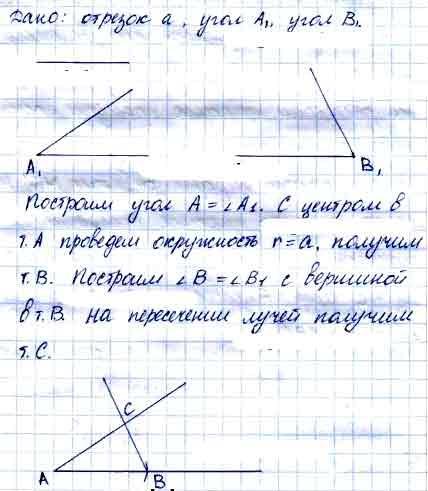 Дано: отрезок a, угол A₁, угол B₁.
A₁
B₁
Построим угол A = ∠A₁. С центром в
т. A проведем окружность r=a, получим
т. B. Построим ∠B = ∠B₁ с вершиной
в т. B. на пересечении лучей получим
т. C.
C
A
B